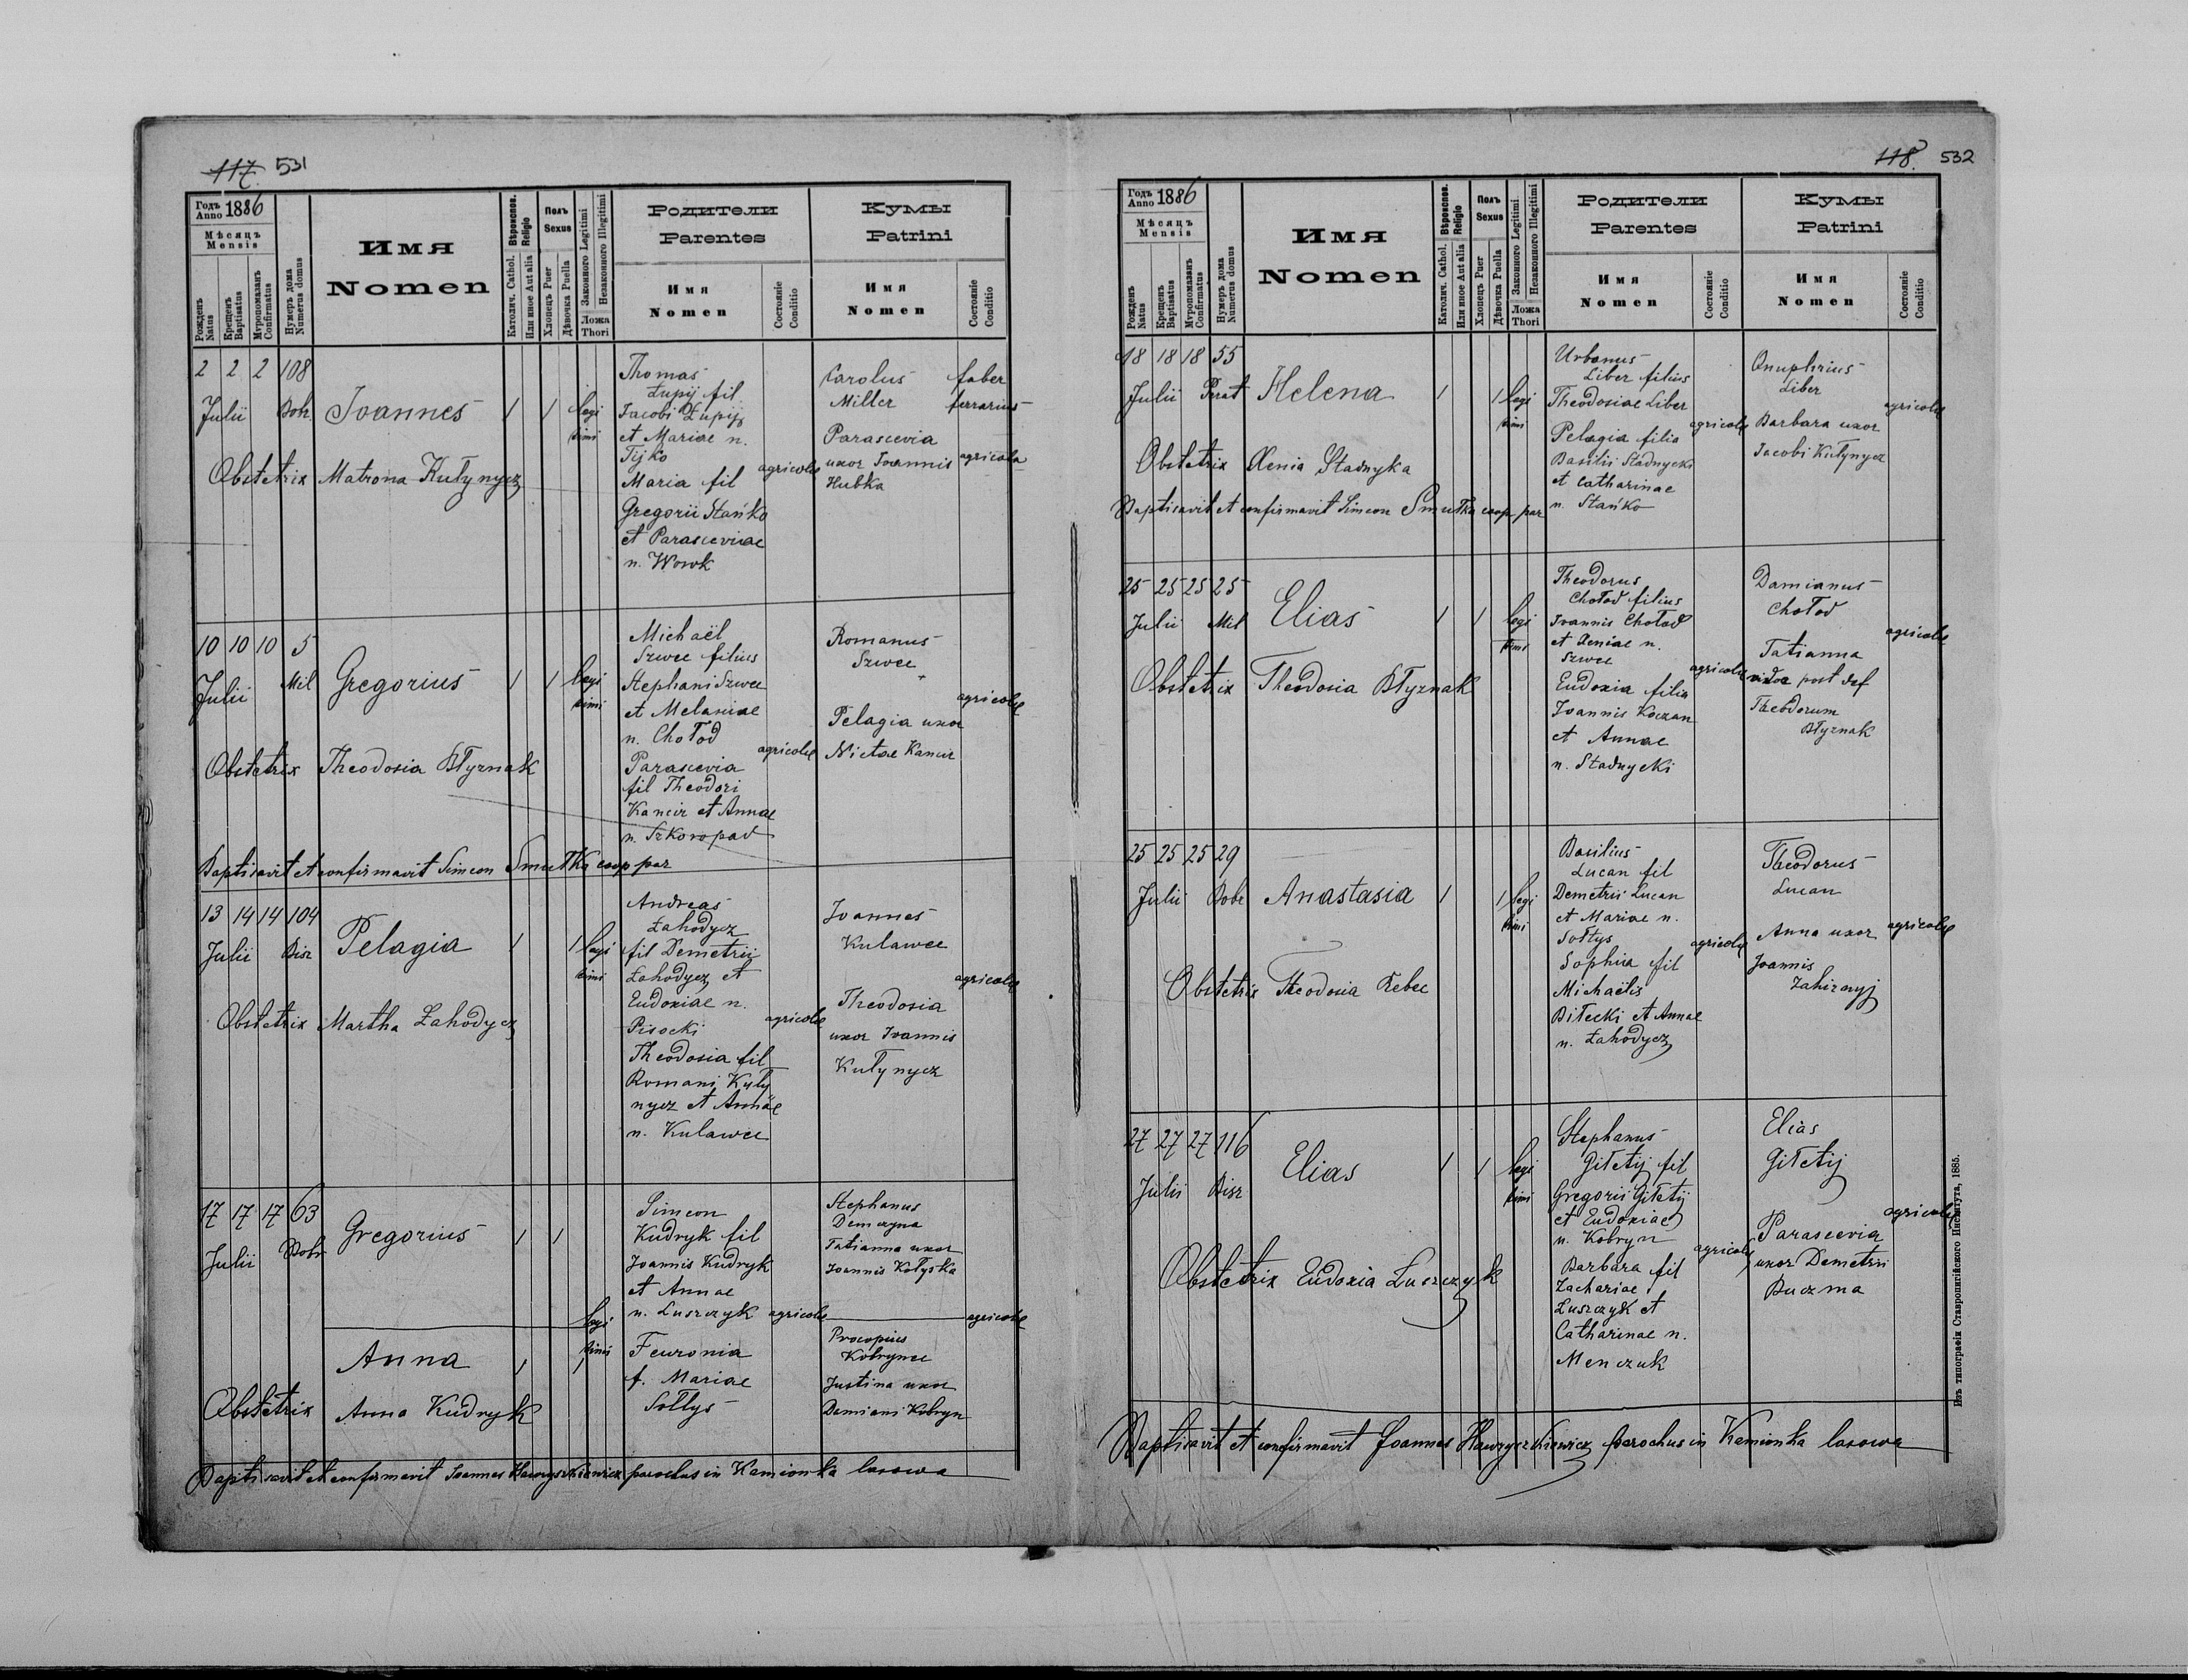 117. 531
Годъ Anno 1886
Мѣсяцъ Mensis
Рожденъ Natus
Крещенъ Baptisatus
Мѵропомазанъ Confirmatus
Нумеръ дома Numerus domus
Имя
Nomen
Вѣроиспов. Religio
Католич. Cathol.
Или иное Aut alia
Полъ Sexus
Хлопецъ Puer
Дѣвочка Puella
Законного Legitimi
Незаконного Illegitimi
Ложа Thori
Родители
Parentes
Имя
Nomen
Состояніе Conditio
Кумы
Patrini
Имя
Nomen
Состояніе Conditio
2 2 2 108
Julii
Joannes 1 1 legi
timi
Obstetrix Matrona Kutynycz
Thomas
Łupij fil
Jacobi Łupij
et Mariae n.
Tijko
Maria fil
agricolae
Gregorii Stańko
et Parasceviae
n. Wowk
Carolus faber
Miller ferrarius
Parascevia
uxor Joannis agricola
Hubka
10 10 10 5
Julii Mil Gregorius 1 1 legi
timi
Obstetrix Theodosia Błyznak
Michaël
Szwec filius
Stephani Szwec
et Melaniae
n. Chołod
agricolae
Parascevia
fil Theodori
Kancir et Annae
n. Szkoropad
Romanus
Szwec
agricolae
Pelagia uxor
Nictae Kancir
Baptisavit et confirmavit Simeon Smutka coop par
13 14 14 104
Julii Bisz Pelagia 1 1 legi
timi
Obstetrix Martha Zahodycz
Andreas
Zahodycz
fil Demetrii
Zahodycz et
Eudoxiae n.
Pisocki
agricolae
Theodosia fil
Romani Kuty
nycz et Annae
n. Kulawec
Joannes
Kulawec
agricolae
Theodosia
uxor Joannis
Kutynycz
17 17 17 63
Julii Bobr Gregorius 1 1
Simeon
Kudryk fil
Joannis Kudryk
et Annae
n. Luszczyk agricolae
Stephanus
Demczyna
Tatianna uxor
Joannis Kotyska
agricolae
legi
timi
Anna 1 1
Obstetrix Anna Kudryk
Feuronia
f. Mariae
Sołtys
Procopius
Kobrynec
Justina uxor
Damiani Kobryn
Baptisavit et confirmavit Joannes Hawryszkiewicz parochus in Kamionka lasowa
118. 532
Годъ Anno 1886
Мѣсяцъ Mensis
Рожденъ Natus
Крещенъ Baptisatus
Мѵропомазанъ Confirmatus
Нумеръ дома Numerus domus
Имя
Nomen
Вѣроиспов. Religio
Католич. Cathol.
Или иное Aut alia
Полъ Sexus
Хлопецъ Puer
Дѣвочка Puella
Законного Legitimi.
Незаконного Illegitimi
Ложа Thori
Родители
Parentes
Имя
Nomen
Состояніе Conditio
Кумы
Patrini
Имя
Nomen
Состояніе Conditio
18 18 18 55
Julii Perat Helena 1 1 legi
timi
Obstetrix Xenia Stadnyka
Urbanus
Liber filius
Theodosiae Liber
agricolae
Pelagia filia
Basilii Stadnycki
et Catharinae
n. Stańko
Onuphrius
Liber
agricolae
Barbara uxor
Jacobi Kutynycz
Baptisavit et confirmavit Simeon Smutka coop par
25 25 25 25
Julii Mil Elias 1 1 legi
timi
Obstetrix Theodosia Błyznak
Theodorus
Chołod filius
Joannis Chołod
et Xeniae n.
Szwec
agricolae
Eudoxia filia
Joannis Koczan
et Annae
n. Stadnycki
Damianus
Chołod
agricolae
Tatianna
vidoa post def
Theodorum
Błyznak
25 25 25 29
Julii Bobr Anastasia 1 1 legi
timi
Obstetrix Theodosia Rebec
Basilius
Lucan fil
Demetrii Lucan
et Mariae n.
Sołtys
agricolae
Sophia fil
Michaëlis
Biłecki et Annae
n. Zahodycz
Theodorus
Lucan
agricolae
Anna uxor
Joannis
Zahirnyj
27 27 27 116
Julii Bisz Elias 1 1 legi
timi
Obstetrix Eudoxia Luszczyk
Stephanus
Giłetij fil
Gregorii Giłetij
et Eudoxiae
n. Kobryn
agricolae
Barbara fil
Zachariae
Luszczyk et
Catharinae n.
Menczuk
Elias
Giłetij
agricolae
Parascevia
uxor Demetrii
Buczma
Baptisavit et confirmavit Joannes Hawryszkiewicz parochus in Kamionka lasowa
Изъ типографіи Ставропигійского Института, 1885.